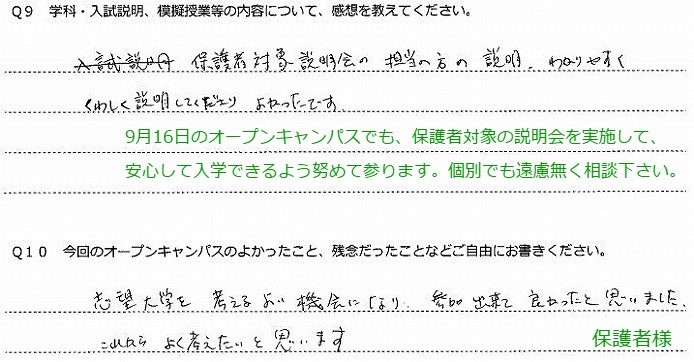 Q9　学科・入試説明、模擬授業等の内容について、感想を教えてください。
入試説明 保護者対象説明会の担当の方の説明、わかりやすく
くわしく説明してくださり よかったです。
9月16日のオープンキャンパスでも、保護者対象の説明会を実施して、
安心して入学できるよう努めて参ります。個別でも遠慮無く相談下さい。
Q10　今回のオープンキャンパスのよかったこと、残念だったことなどご自由にお書きください。
志望大学を考えるよい機会になり、参加出来て良かったと思いました。
これから よく考えたいと思います
保護者様